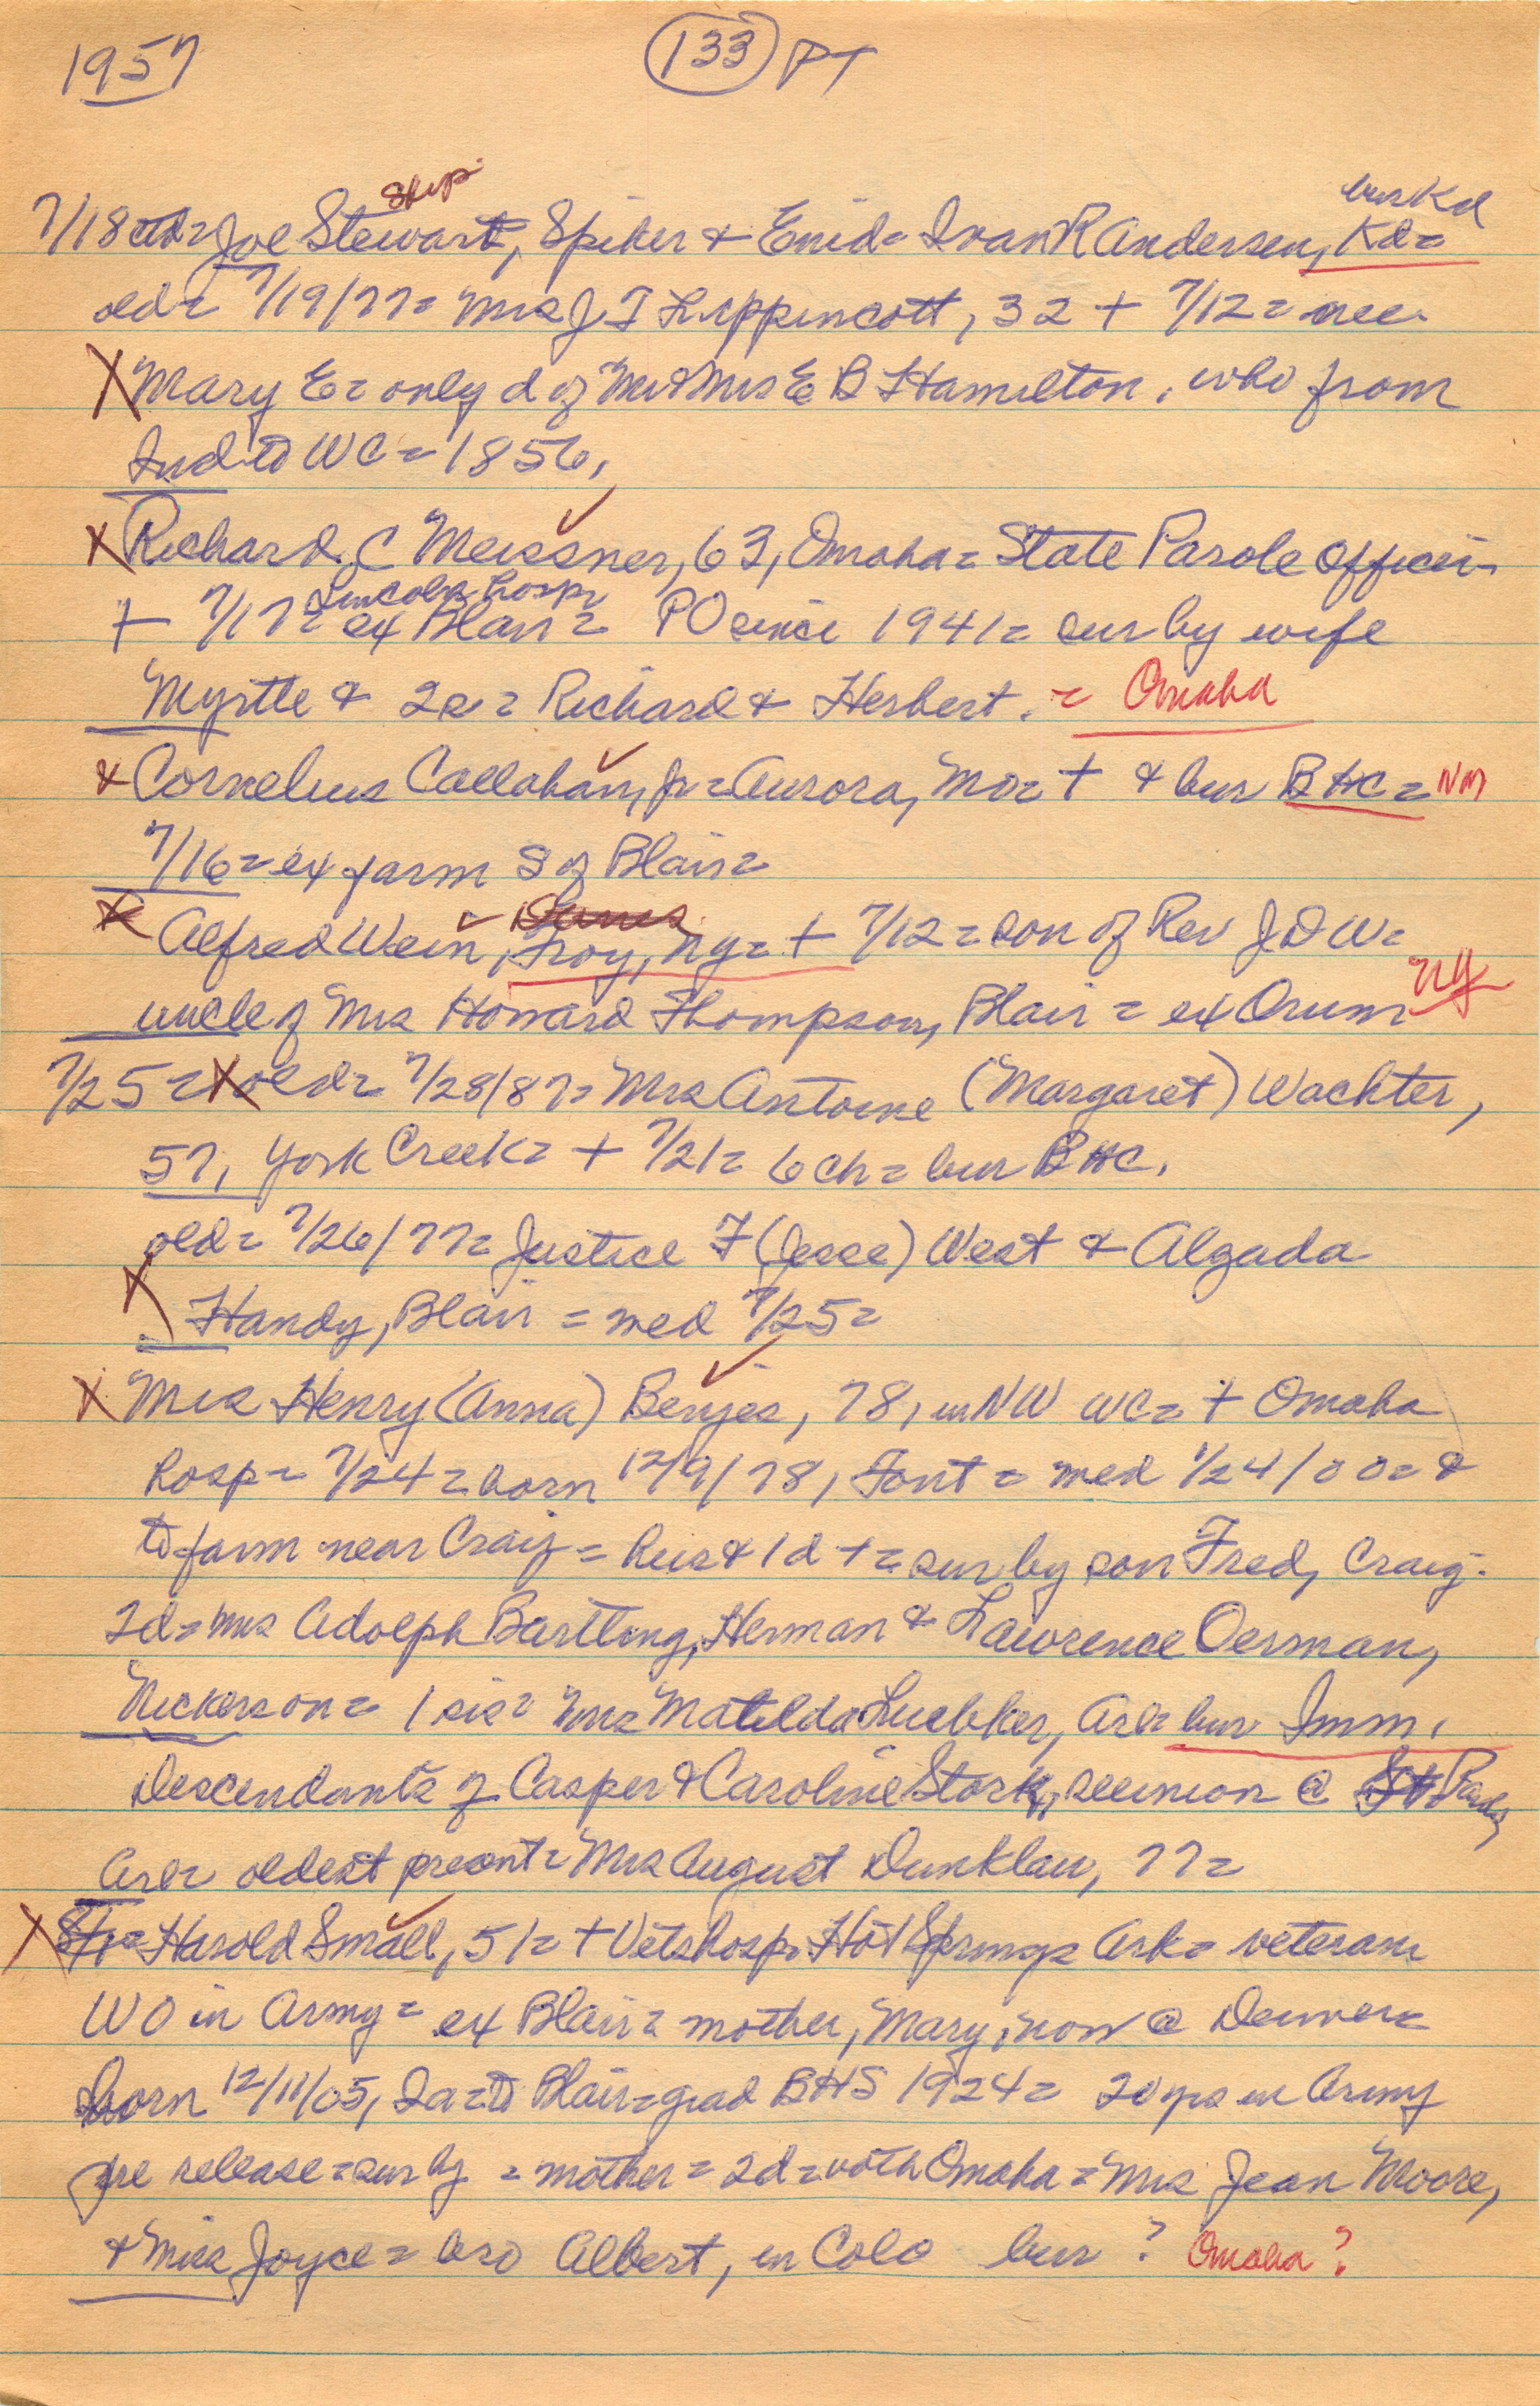 1957 133 PT
Skip bur Kd
7/18 Joe Stewart, Spiker & Enid = Ivan R Andersen, Kd =
old = 7/19/77 = Mrs J T Lippincott, 32 + 7/12 = nee
X Mary E = only d of Mr & Mrs E B Hamilton, who from
Ind to WC = 1856,
X Richard C Meissner, 63, Omaha = State Parole officer -
Lincoln hosp
+ 7/17 = ex Blair = PO since 1941 = sur by wife
Myrtle & 2s = Richard & Herbert. = Omaha
X Cornelius Callahan, Jr = Aurora, Mo = + & bur BHC = NM
7/16 = ex farm S of Blair =
X Alfred Wein, Troy, NY = + 7/12 = son of Rev J D W =
uncle of Mrs Howard Thompson, Blair = ex Orum NY
7/25 = X old = 7/28/87 = Mrs Antoine (Margaret) Wachter,
57, York Creek = + 7/21 = 6 ch = bur BHC.
old = 7/26/77 = Justice F (Jesse) West & Algada
X Handy, Blair = med 7/25 =
X Mrs Henry (Anna) Benjes, 78, in NW WC = + Omaha
hosp = 7/24 = born 12/9/78, Font = med 1/24/00 = &
to farm near Craig = hus & 1 d + = sur by son Fred, Craig -
2d = Mrs Adolph Bartling, Herman & Lawrence Oerman,
Nickerson = 1 sis = Mrs Matilda Luebker, Arl = bur Imm.
Descendants of Casper & Caroline Stork, reunion @ Park,
Arl = oldest present = Mrs August Dunklau, 77 =
X Harold Small, 51 = + Vets hosp, Hot Springs Ark = veteran
WO in Army = ex Blair = mother, Mary, now @ Denver =
born 12/11/05, Ia = to Blair = grad BHS 1924 = 20 yrs in Army
pre release = sur by = mother = 2d = both Omaha = Mrs Jean Moore,
& Miss Joyce = bro Albert, in Colo bur ? Omaha ?